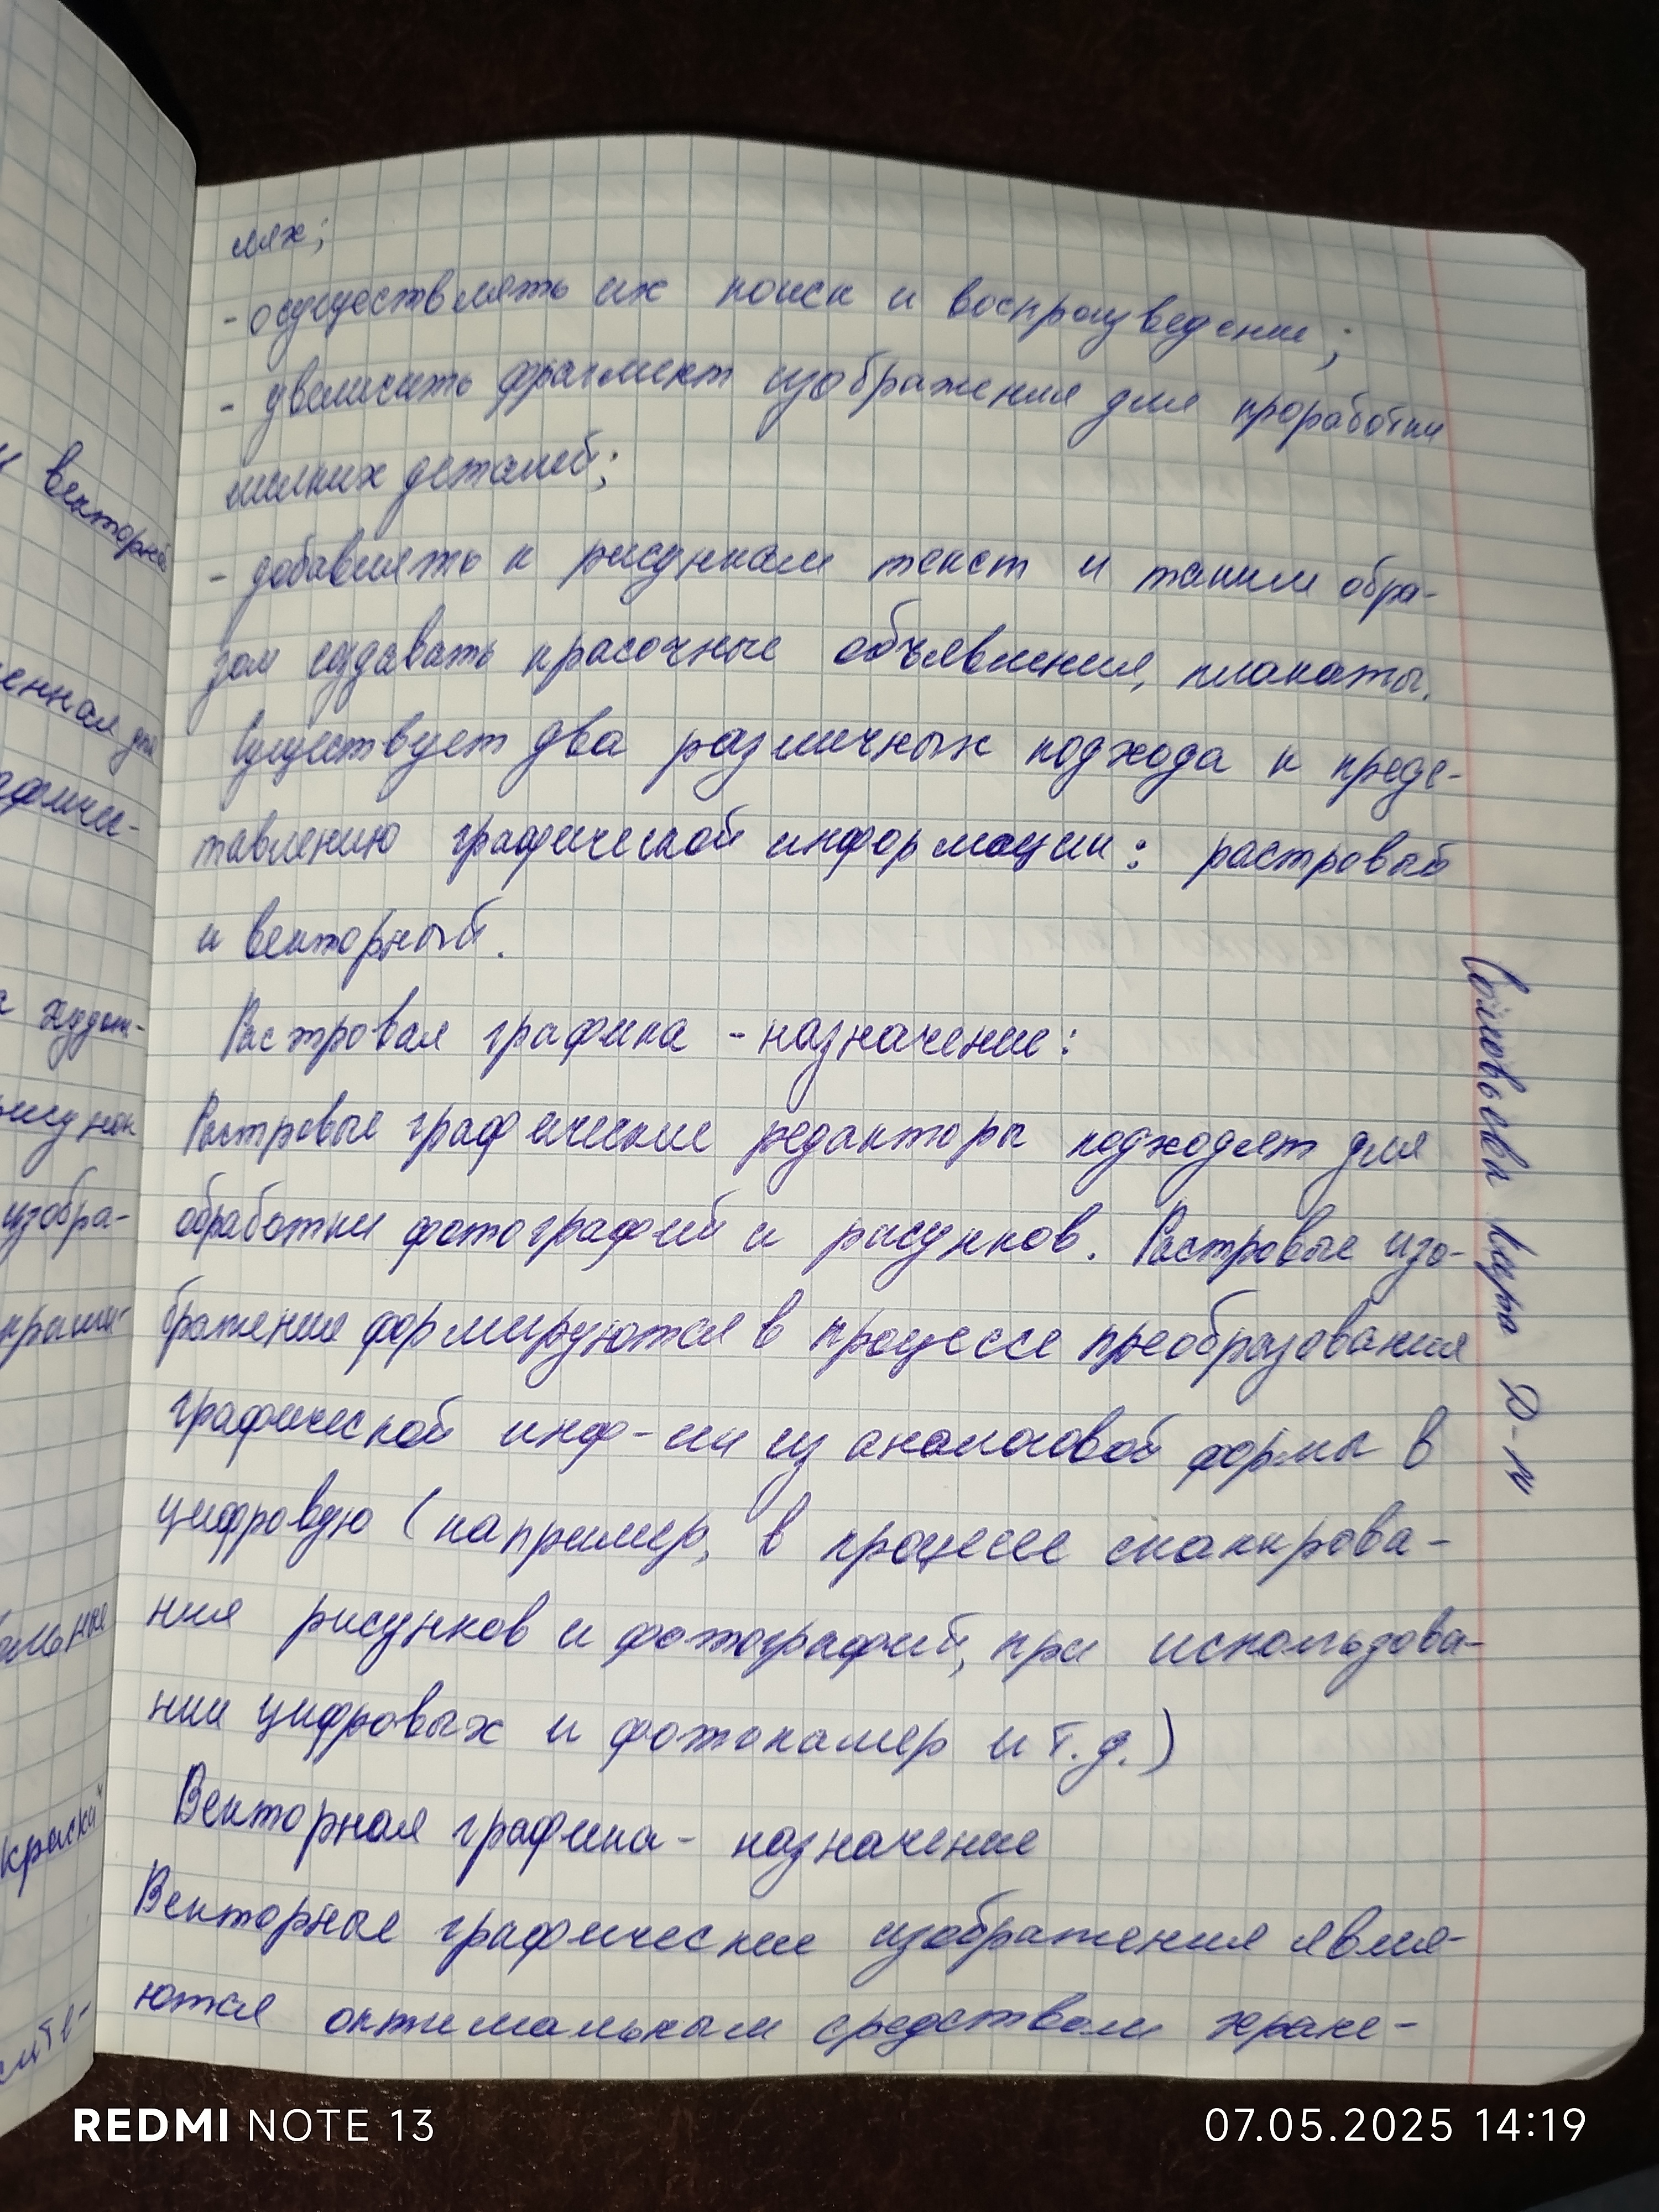 лях;
- осуществлять их поиск и воспроизведение;
- увеличить фрагмент изображения для проработки
мелких деталей;
- добавлять к рисункам текст и таким обра-
зом создавать красочные объявления, плакаты.
Существует два различных подхода к предс-
тавлению графической информации: растровый
и векторный.
Растровая графика - назначение:
Растровые графические редакторы подходят для
обработки фотографий и рисунков. Растровые изо-
бражения формируются в процессе преобразования
графической инф-ии из аналоговой формы в
цифровую (например, в процессе сканирова-
ния рисунков и фотографий, при использова-
нии цифровых и фотокамер и т.д.)
Векторная графика - назначение
Векторные графические изображения явля-
ются оптимальным средством хране-
Соловьева Кира Д-н
векторно
енная для
афичи-
худож-
рисунок
изобра-
краски"
REDMI NOTE 13
07.05.2025 14:19